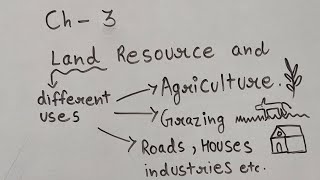 Ch - 3
Land Resource and
different uses
Agriculture.
Grazing
Roads, Houses
industries etc.